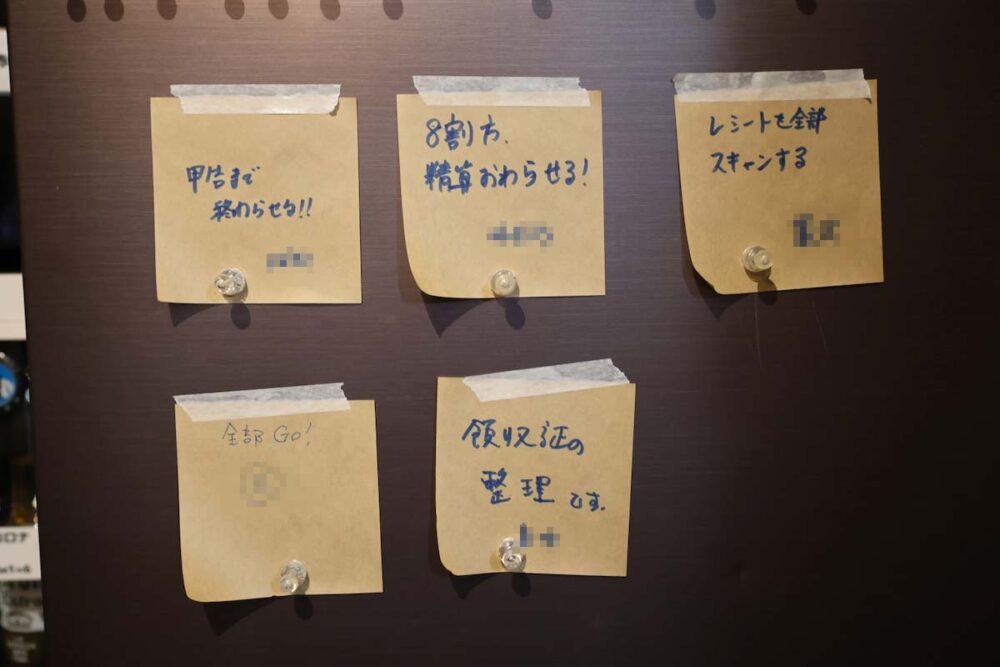 甲告まで
終わらせる!!
8割方、
精算おわらせる!
レシートを全部
スキャンする
全部 Go!
領収証の
整理です.
ロナ